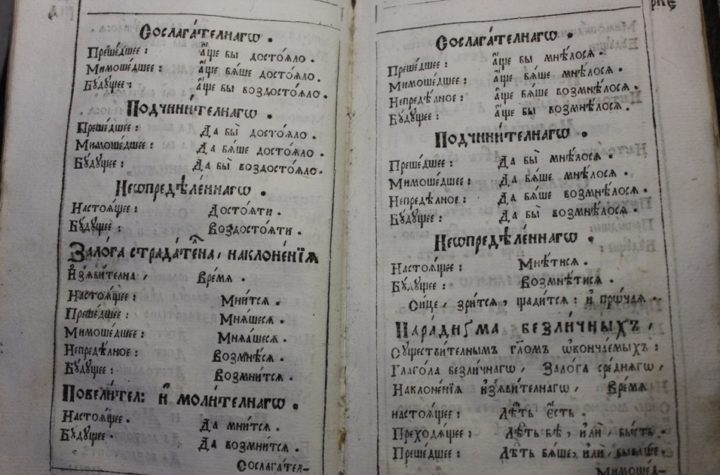 Сослага́телнагѡ .
Преше́дшее : а҆́ще бы достоѧло .
Мимоше́дшее : а҆́ще бѧ́ше досто́ѧло .
Бу́дущее : а҆́ще бы воздостоѧло .
Подчини́телнагѡ .
Преше́дшее : Да бы̀ досто́ѧло .
Мимоше́дшее : Да бѧ́ше досто́ѧло .
Бу́дущее : Да бы̀ воздостоѧло .
Неѡпредѣле́ннагѡ .
Настоѧ́щее : Достоѧ́ти .
Бу́дущее : Воздостоѧ́ти .
Зало́га страда́телна, наклоне́нїѧ
И҆з̾ѧви́телна , Вре́мѧ .
Настоѧ́щее : Мни́тсѧ .
Преше́дшее : Мнѧ́шесѧ .
Мимоше́дшее : Мнѧ́ашесѧ .
Непредѣ́лное : Возмнѣ́сѧ .
Бу́дущее : Возмни́тсѧ .
Повели́тел : и҆ моли́телнагѡ .
Настоѧ́щее . Да мни́тсѧ .
Бу́дущее . Да возмни́тсѧ .
Сослага́тел-
рке
Сослага́телнагѡ .
Преше́дшее : а҆́ще бы мнѣ́лосѧ .
Мимоше́дшее : а҆́ще бѧ́ше мнѣ́лосѧ .
Непредѣ́лное : а҆́ще бѧ́ше возмнѣ́лосѧ .
Бу́дущее : а҆́ще бы возмнѣ́лосѧ .
Подчини́телнагѡ .
Преше́дшее : Да бы̀ мнѣ́лосѧ .
Мимоше́дшее : Да бѧ́ше мнѣ́лосѧ .
Непредѣ́лное : Да бѧ́ше возмнѣ́лосѧ .
Бу́дущее : Да бы̀ возмнѣ́лосѧ .
Неѡпредѣле́ннагѡ .
Настоѧ́щее : Мнѣ́тисѧ .
Бу́дущее : Возмнѣ́тисѧ .
Си́це , зри́тсѧ , щади́тсѧ : и҆ прѡ́чаѧ .
Паради́гма безли́чныхъ ,
Существи́телным гл҃ом ѡ҆конча́емыхъ :
Глаго́ла безли́чнагѡ , Зало́га сре́днѧгѡ ,
Наклоне́нїѧ и҆з̾ѧви́телнагѡ , Вре́мѧ
настоѧ́щее : Лѣ́ть є҆́сть .
Преходѧ́щее : Лѣ́ть бѣ̀ , и҆лѝ , бы́сть .
Преше́дшее : Лѣ́ть бѧ́ше , и҆лѝ , быва́ше .
Мимоше́д-